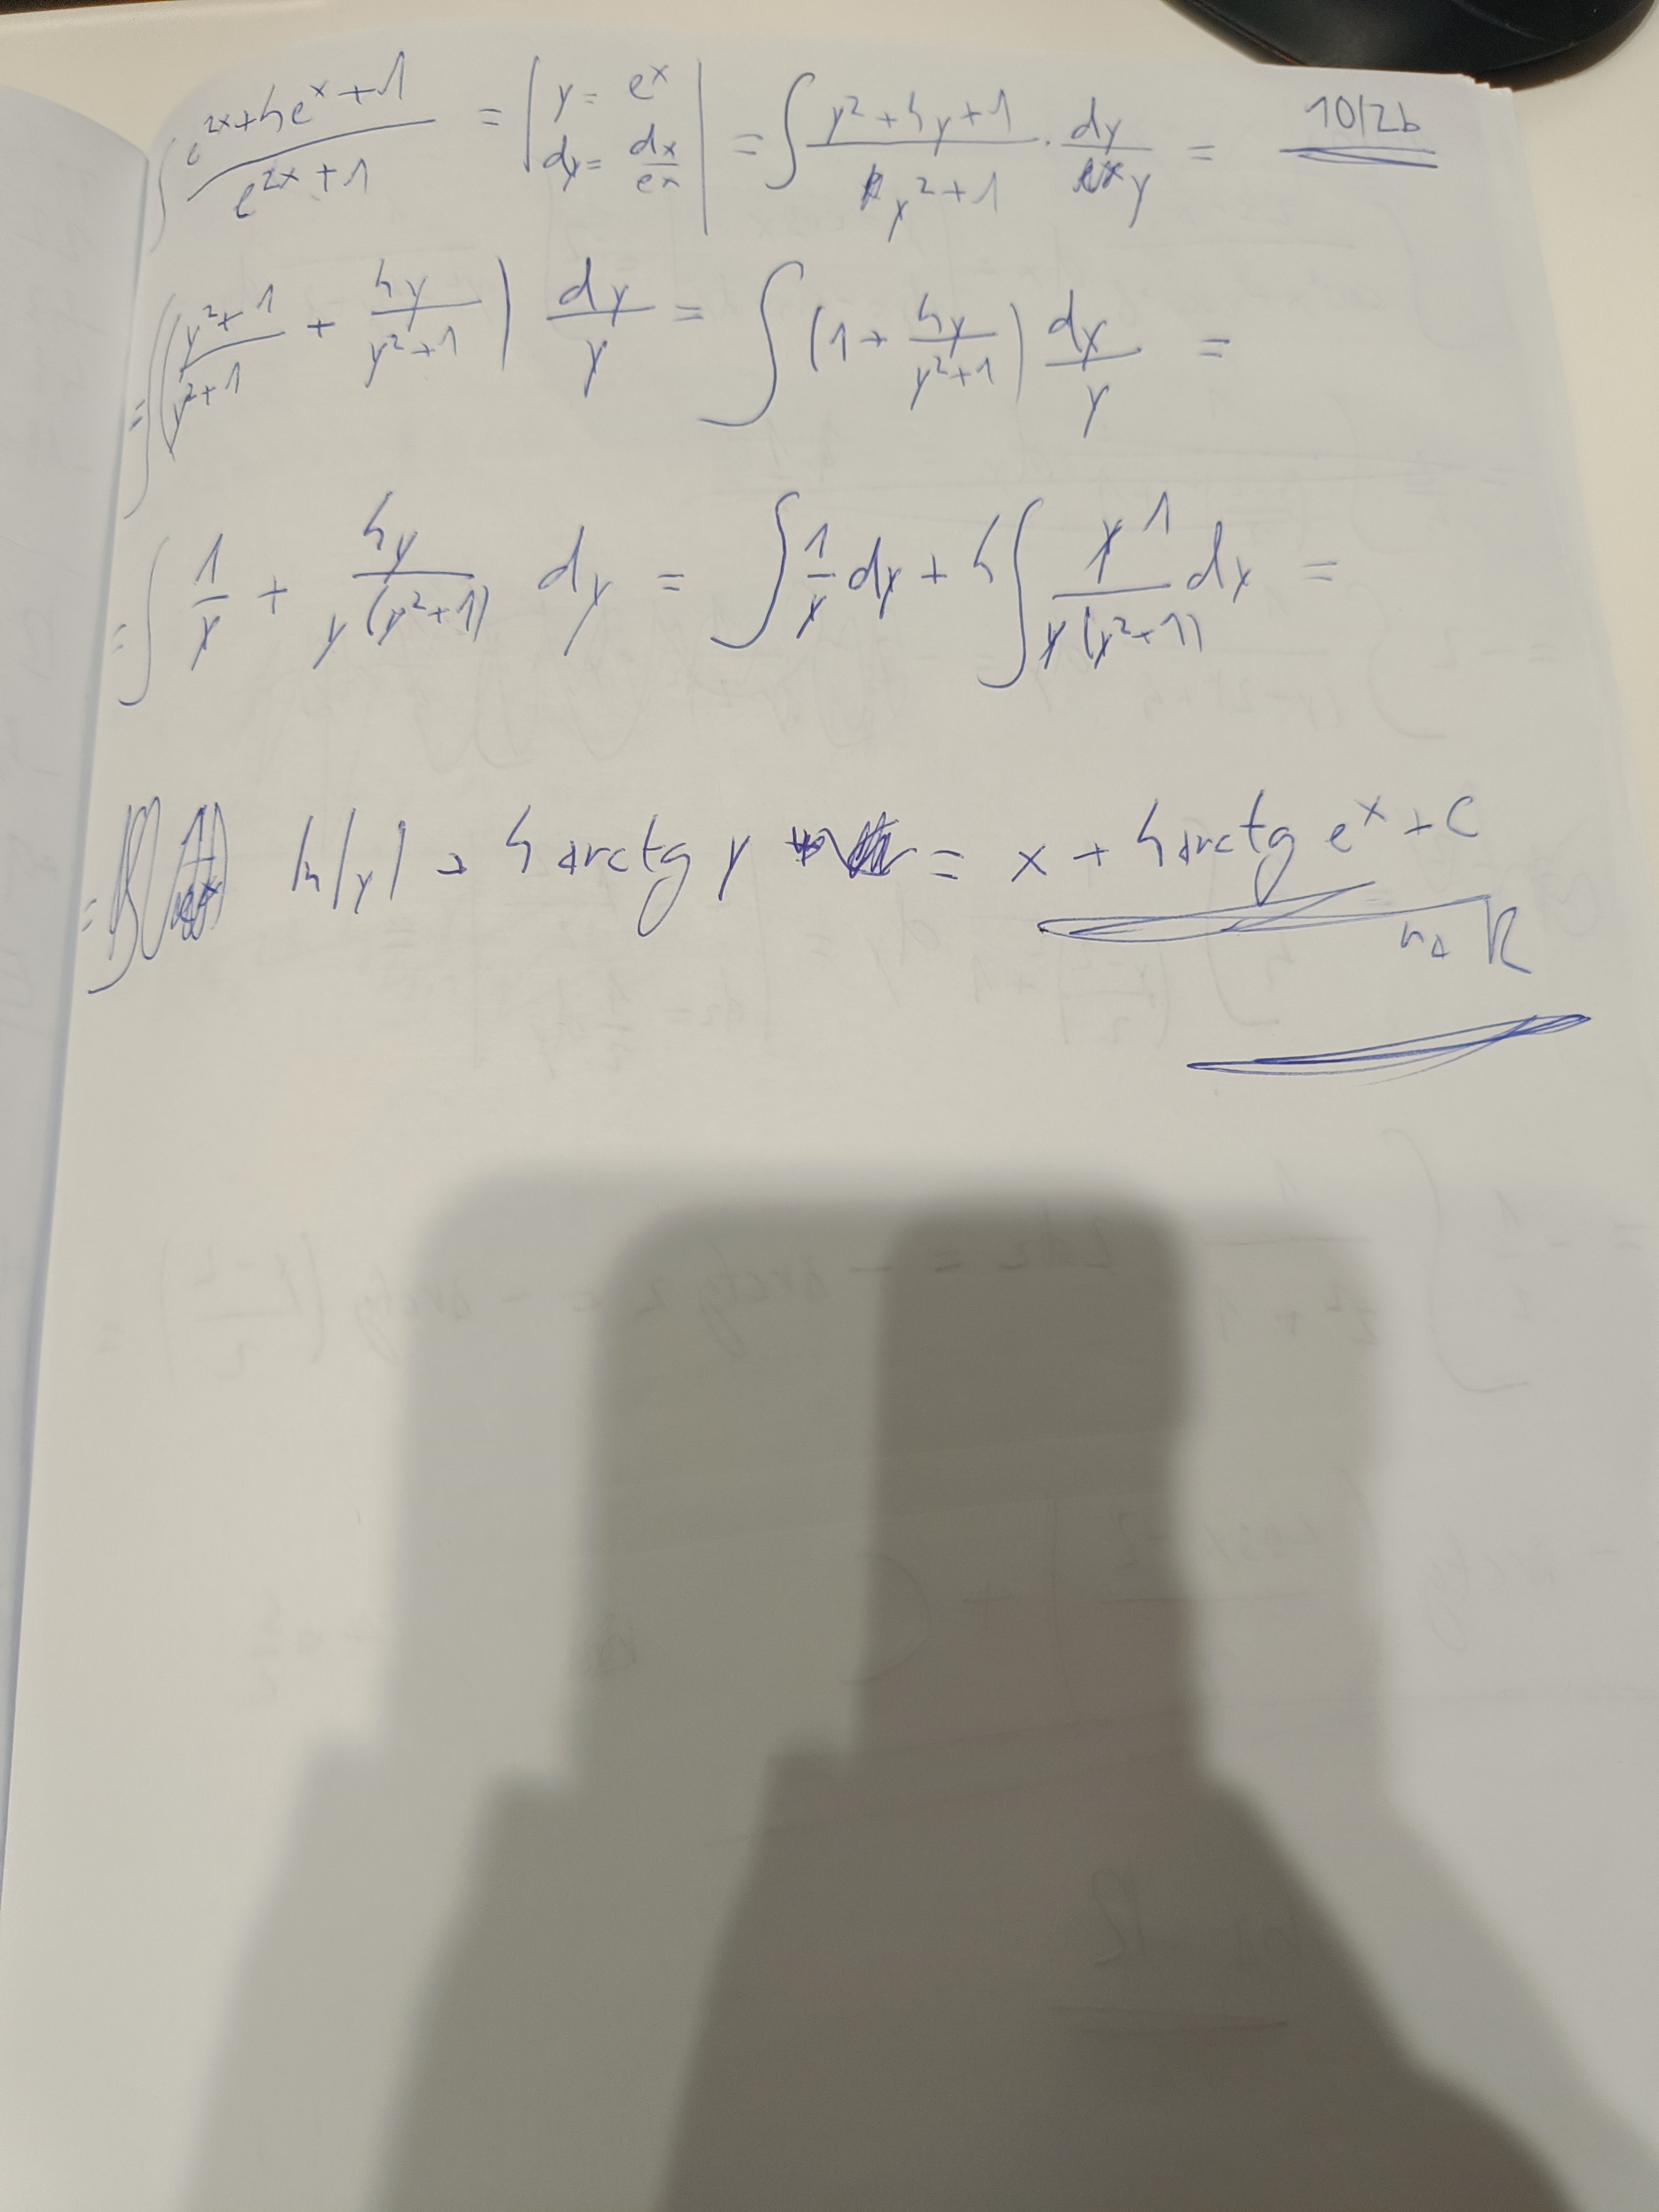 ∫ (e^(2x)+4e^x+1)/(e^(2x)+1) = | y = e^x, dy = dx/e^x | = ∫ (y²+4y+1)/(y²+1) · dy/y = 10/2b
= ∫ ((y²+1)/(y²+1) + 4y/(y²+1)) dy/y = ∫ (1 + 4y/(y²+1)) dy/y =
= ∫ 1/y + 4y/(y(y²+1)) dy = ∫ 1/y dy + 4 ∫ y 1/(y(y²+1)) dy =
= ln|y| + 4 arctg y = x + 4 arctg e^x + C
na R